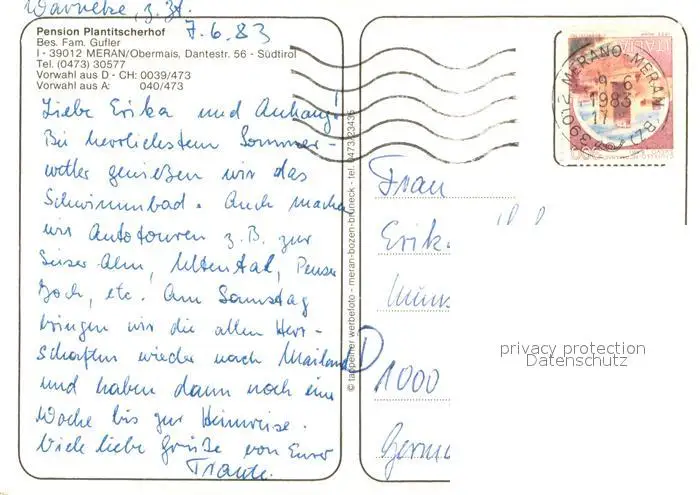 Warnecke, z. Zt.
7.6.83
Pension Plantitscherhof
Bes. Fam. Gufler
I - 39012 MERAN/Obermais, Dantestr. 56 - Südtirol
Tel. (0473) 30577
Vorwahl aus D - CH: 0039/473
Vorwahl aus A: 040/473
Liebe Erika und Anhang!
Bei herrlichstem Sommer-
wetter genießen wir das
Schwimmbad. Auch machen
wir Autotouren z.B. zur
Seiser Alm, Ultental, Penser
Joch, etc. Am Samstag
bringen wir die alten Herr-
schaften wieder nach Mailand
und haben dann noch eine
Woche bis zur Heimreise.
Viele liebe Grüße von Eurer
Traute.
© tappeiner werbefoto - meran-bozen-bruneck - tel. 0473/23435
39012 MERANO-MERAN (BZ)
9-6
1983
17
ITALIA
Frau
Erik
D
1000
Germ
privacy protection
Datenschutz